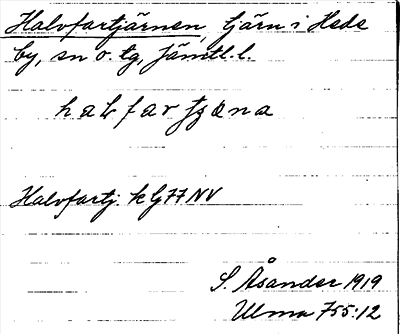 Halvfartjärnen, tjärn i Hede
by, sn o. tg, Jämtl. l.
Halvfartj. k G77 NV
S. Åsander 1919
Ulma 755:12